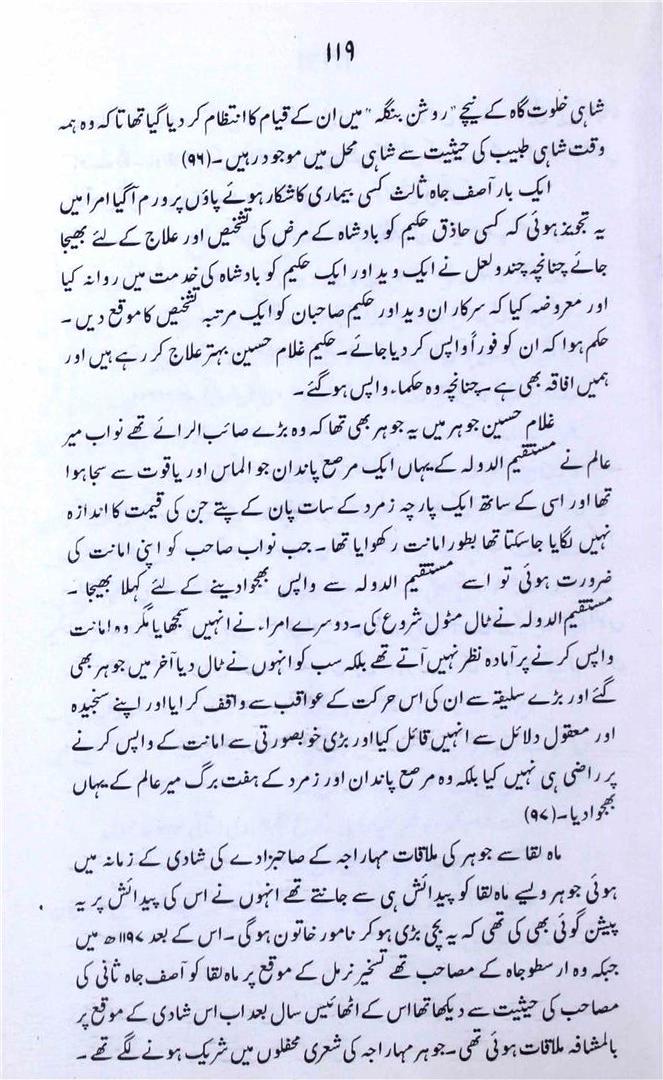 ۱۱۹
شاہی خلوت گاہ کے نیچے "روشن بنگلہ" میں ان کے قیام کا انتظام کر دیا گیا تھا تاکہ وہ ہمہ
وقت شاہی طبیب کی حیثیت سے شاہی محل میں موجود رہیں۔ (۹۶)
ایک بار آصف جاہ ثالث کسی بیماری کا شکار ہوئے پاؤں پر ورم آگیا امرا میں
یہ تجویز ہوئی کہ کسی حاذق حکیم کو بادشاہ کے مرض کی تشخیص اور علاج کے لئے بھیجا
جائے چنانچہ چندولعل نے ایک وید اور ایک حکیم کو بادشاہ کی خدمت میں روانہ کیا
اور معروضہ کیا کہ سرکار ان وید اور حکیم صاحبان کو ایک مرتبہ تشخیص کا موقع دیں۔
حکم ہوا کہ ان کو فوراً واپس کر دیا جائے۔ حکیم غلام حسین بہتر علاج کر رہے ہیں اور
ہمیں افاقہ بھی ہے۔ چنانچہ وہ حکماء واپس ہوگئے۔
غلام حسین جوہر میں یہ جوہر بھی تھا کہ وہ بڑے صائب الرائے تھے نواب میر
عالم نے مستقیم الدولہ کے یہاں ایک مرصع پاندان جو الماس اور یاقوت سے سجا ہوا
تھا اور اسی کے ساتھ ایک پارچہ زمرد کے سات پان کے پتے جن کی قیمت کا اندازہ
نہیں لگایا جاسکتا تھا بطور امانت رکھوایا تھا۔ جب نواب صاحب کو اپنی امانت کی
ضرورت ہوئی تو اسے مستقیم الدولہ سے واپس بھجوا دینے کے لئے کہلا بھیجا۔
مستقیم الدولہ نے ٹال مٹول شروع کی۔ دوسرے امراء نے انہیں سمجھایا مگر وہ امانت
واپس کرنے پر آمادہ نظر نہیں آتے تھے بلکہ سب کو انہوں نے ٹال دیا آخر میں جوہر بھی
گئے اور بڑے سلیقہ سے ان کی اس حرکت کے عواقب سے واقف کرایا اور اپنے سنجیدہ
اور معقول دلائل سے انہیں قائل کیا اور بڑی خوبصورتی سے امانت کے واپس کرنے
پر راضی ہی نہیں کیا بلکہ وہ مرصع پاندان اور زمرد کے ہفت برگ میر عالم کے یہاں
بھجوا دیا۔ (۹۷)
ماہ لقا سے جوہر کی ملاقات مہاراجہ کے صاحبزادے کی شادی کے زمانہ میں
ہوئی جوہر ویسے ماہ لقا کو پیدائش ہی سے جانتے تھے انہوں نے اس کی پیدائش پر یہ
پیشن گوئی بھی کی تھی کہ یہ بچی بڑی ہو کر نامور خاتون ہوگی۔ اس کے بعد ۱۱۹۷ھ میں
جبکہ وہ ارسطو جاہ کے مصاحب تھے تسخیر نرمل کے موقع پر ماہ لقا کو آصف جاہ ثانی کی
مصاحب کی حیثیت سے دیکھا تھا اس کے اٹھائیس سال بعد اب اس شادی کے موقع پر
بالمشافہ ملاقات ہوئی تھی۔ جوہر مہاراجہ کی شعری محفلوں میں شریک ہونے لگے تھے۔